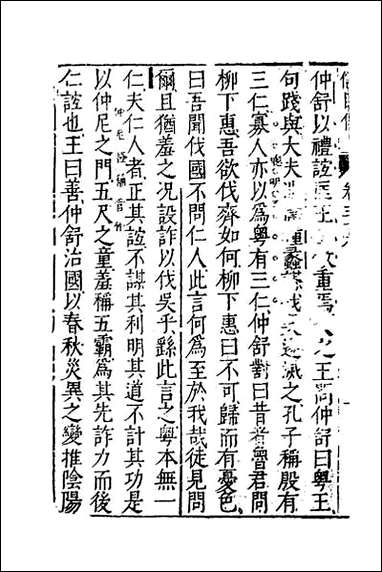 仲舒以禮誼匡王王敬重焉久之王問仲舒曰粤王
句踐與大夫 種蠡 伐 遂滅之孔子稱殷有
三仁寡人亦以爲粤有三仁仲舒對曰昔者魯君問
柳下惠吾欲伐齊如何柳下惠曰不可歸而有憂色
曰吾聞伐國不問仁人此言何爲至於我哉徒見問
爾且猶羞之况設詐以伐吳乎繇此言之粤本無一
仁夫仁人者正其誼不謀其利明其道不計其功是
以仲尼之門五尺之童羞稱五霸爲其先詐力而後
仁誼也王曰善仲舒治國以春秋災異之變推陰陽